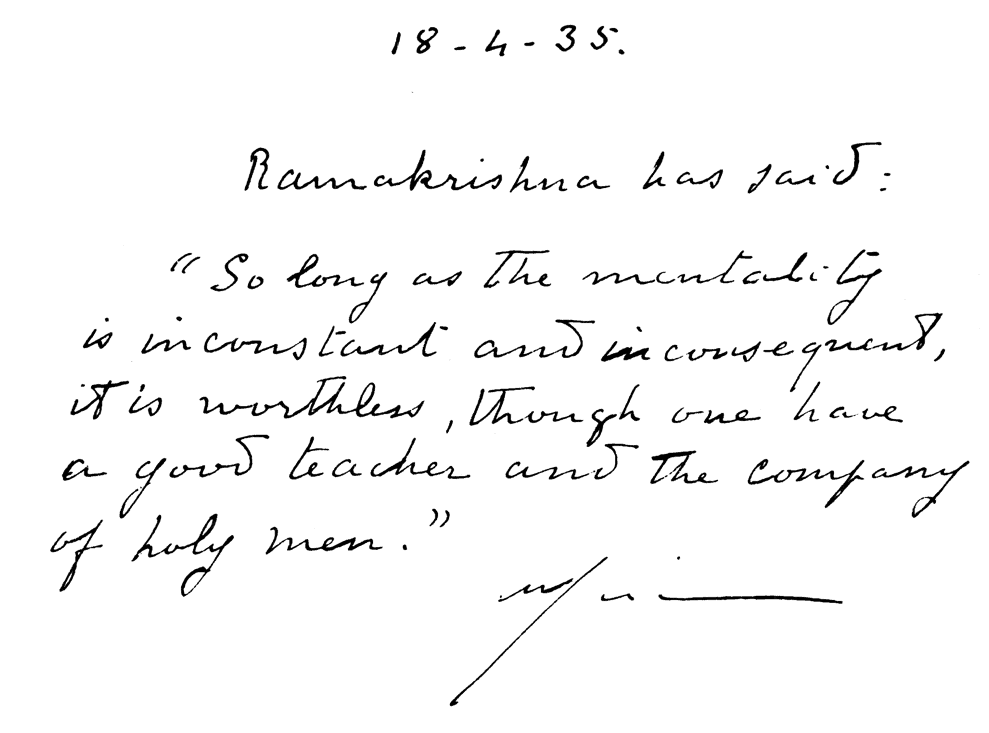 18-4-35.
Ramakrishna has said:
"So long as the mentality
is inconstant and inconsequent,
it is worthless, though one have
a good teacher and the company
of holy men."